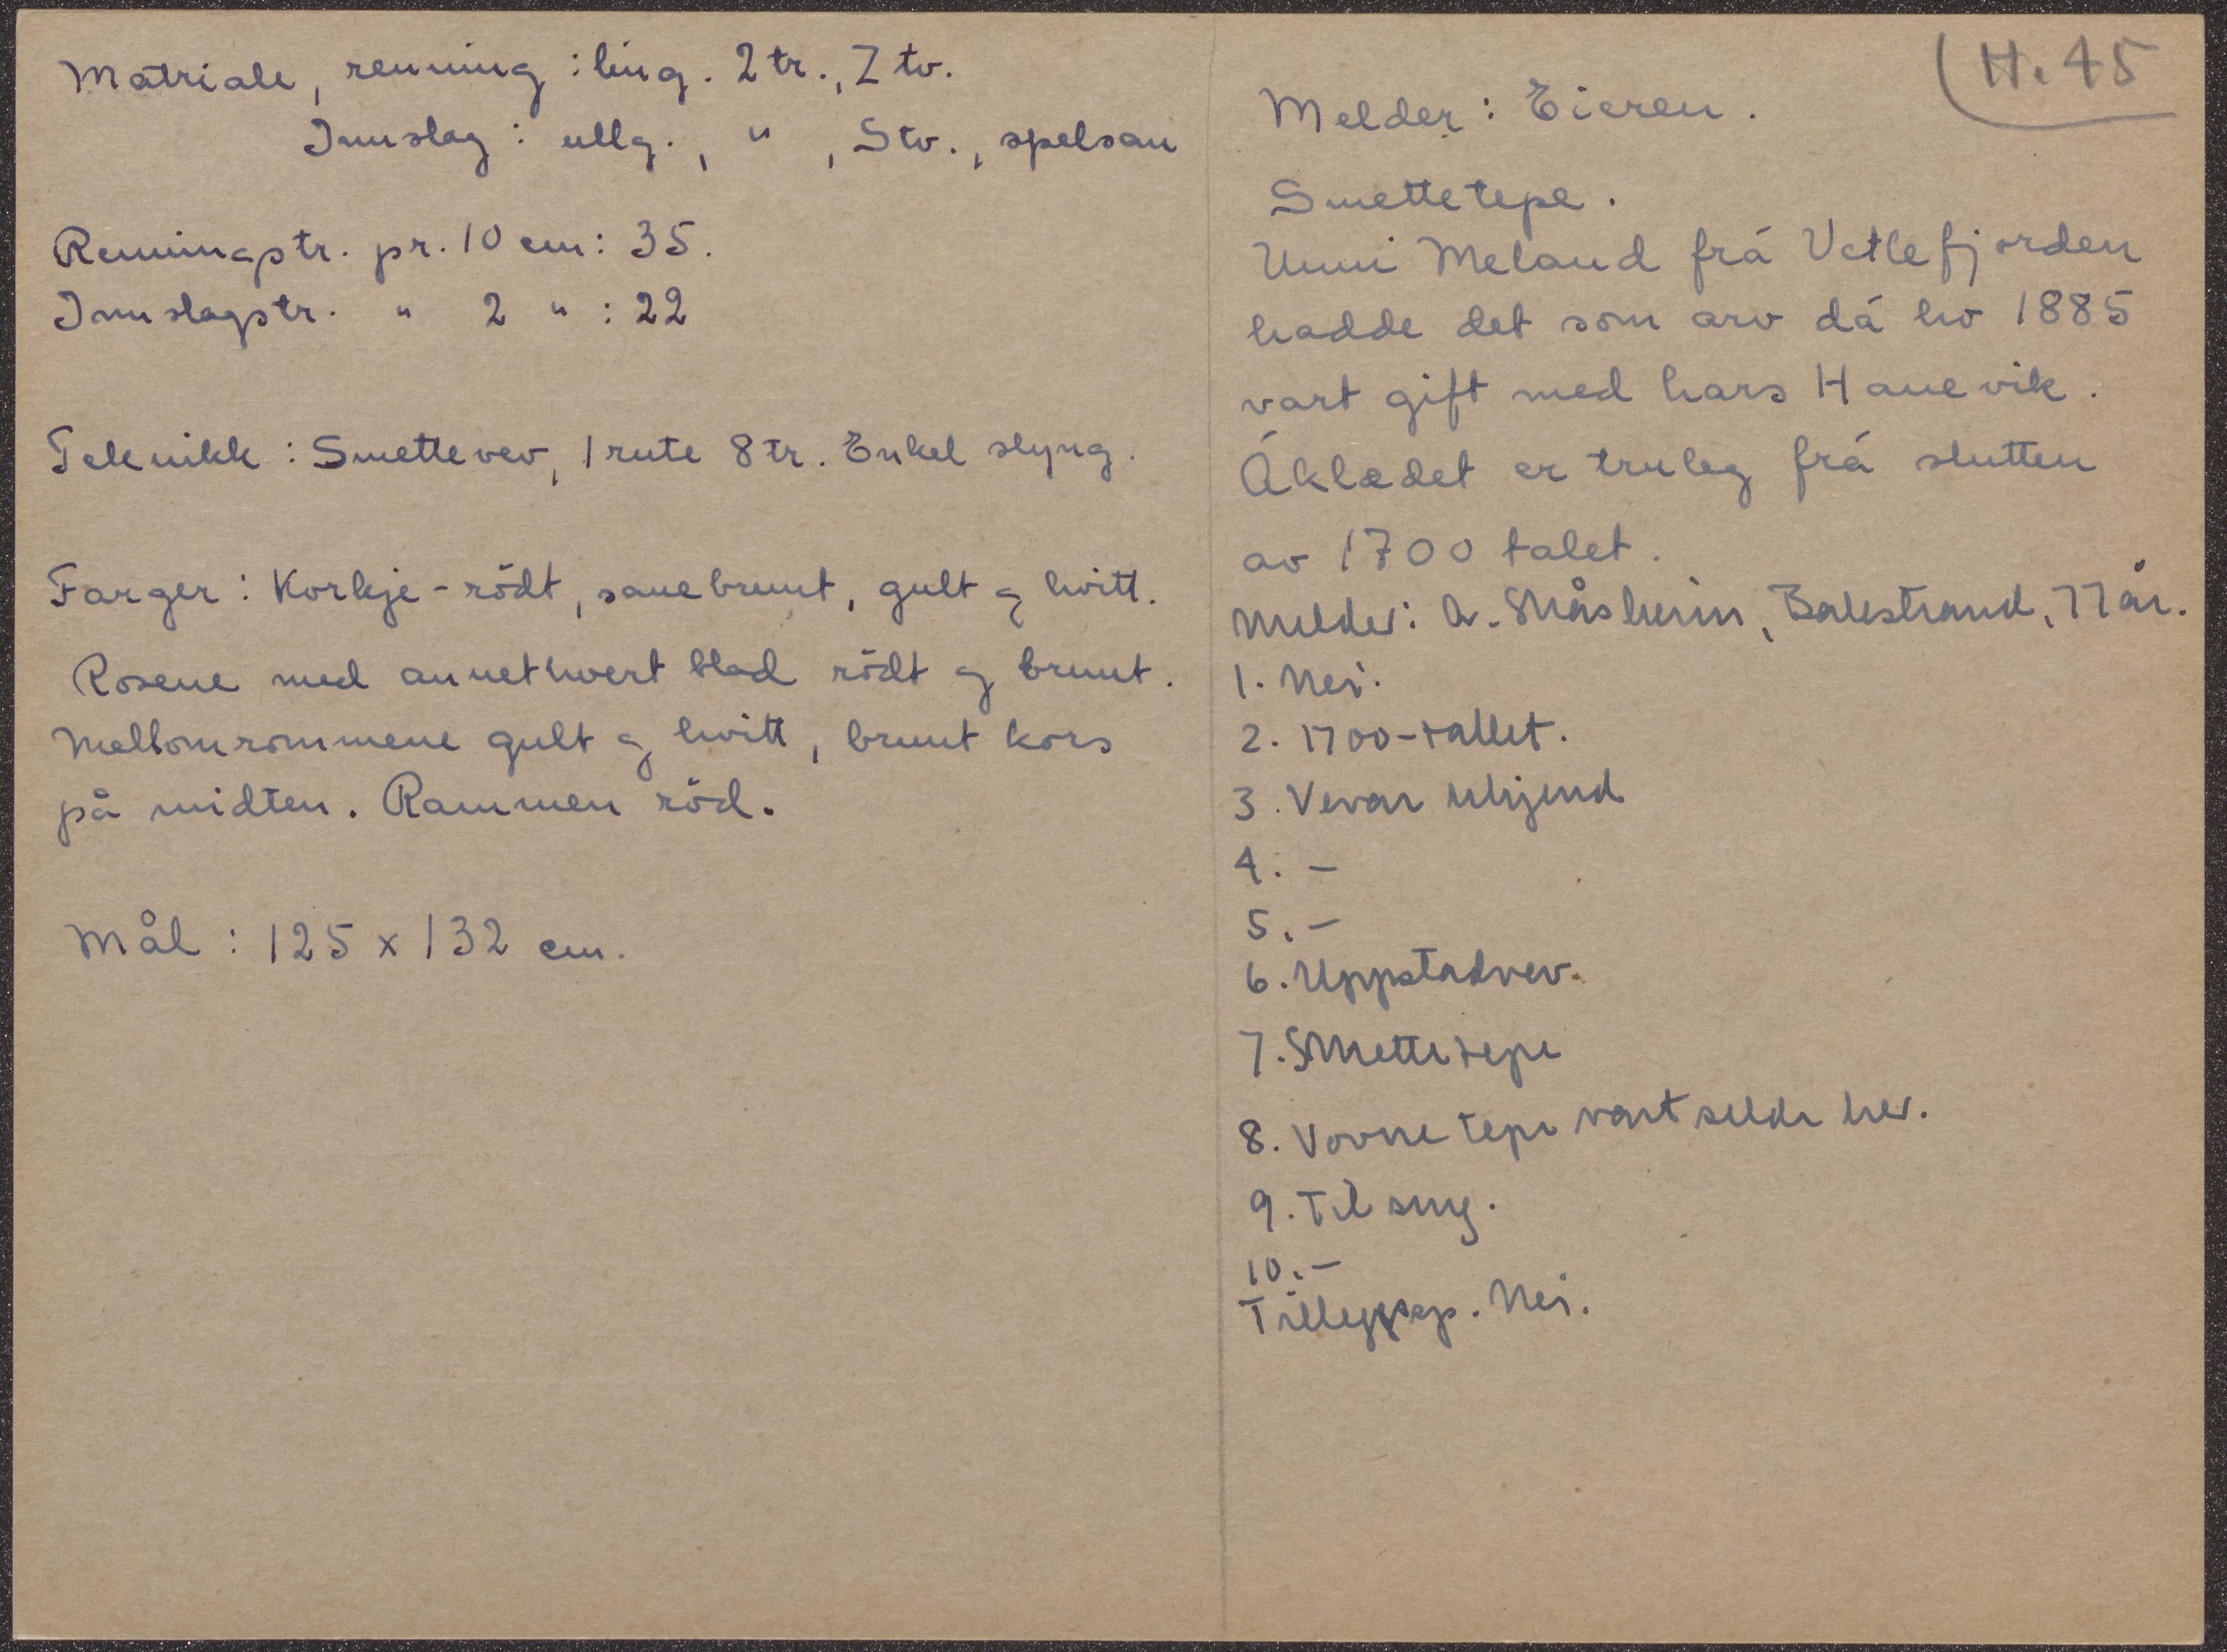 Matriale, renning : ling. 2 tr., Z tv.
Innslag : ullg. , " , S tv. , spelsau
Renningstr. pr. 10 cm : 35.
Innslagstr. " 2 " : 22
Teknikk : Smettevev, 1 rute 8 tr. Enkel slyng.
Farger : Korkje - rödt, sauebrunt, gult og hvitt.
Rosene med annethvert blad rödt og brunt.
Mellomrommene gult og hvitt, brunt kors
på midten. Rammen röd.
Mål : 125 x 132 cm.
H. 45
Melder : Eieren.
Smettetepe.
Unni Meland frá Vetlefjorden
hadde det som arv dá ho 1885
vart gift med Lars Hanevik.
Áklædet er truleg frá slutten
av 1700 talet.
Melder: A. Skåsheim, Balestrand, 77 år.
1. Nei.
2. 1700-tallet.
3. Vevar ukjend
4. -
5. -
6. Uppstadvev.
7. Smettetepe
8. Vovne tepe vart selde her.
9. Til seng.
10. -
Tilleggsp. Nei.